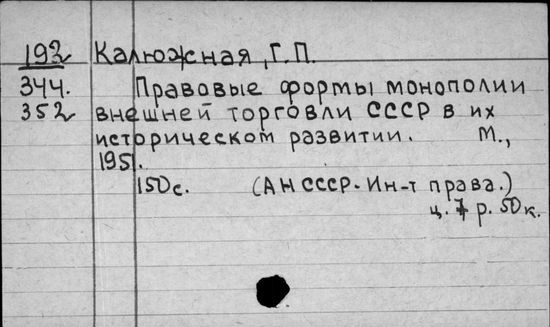 192 Калюжная, Г.П.
344. Правовые формы монополии
352 внешней торговли СССР в их
историческом развитии. М.,
1951.
150 с. (АН СССР. Ин-т права.)
ц. 7 р. 50 к.